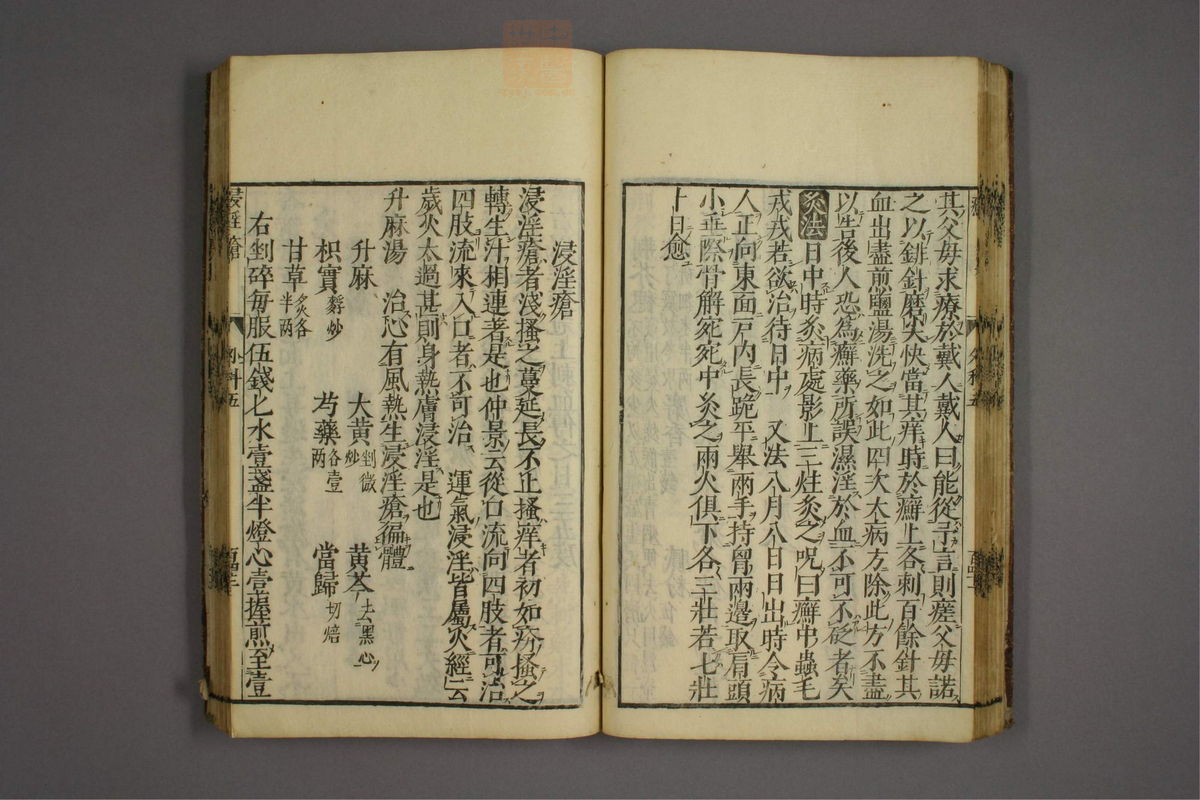 其父母求療於戴人戴人曰能從予言則瘥父母諾
之以銒針磨尖快當其痒時於癬上各刺百餘針其
血出盡煎鹽湯洗之如此四次大病方除此方不盡
以告後人恐為癬藥所誤濕淫於血不可不砭者矣
灸法日中時灸病處影上三炷灸之呪曰癬中蟲毛
戎戎若欲治待日中 又法八月八日日出時令病
人正向東面戸內長跪平舉兩手持胷兩邊取肩頭
小垂際骨解宛宛中灸之兩火俱下各三壯若七壯
十日愈
浸淫瘡
浸淫瘡者淺搔之蔓延長不止搔痒者初如疥搔之
轉生汁相連者是也仲景云從口流向四肢者可治
四肢流來入口者不可治 運氣浸淫皆屬火經云
歲火太過甚則身熱膚浸淫是也
升麻湯 治心有風熱生浸淫瘡徧體
升麻 大黃剉微炒 黃芩去黑心
枳實麩炒 芍藥各壹兩 當歸切焙
甘草炙各半兩
右剉碎每服伍錢匕水壹盞半燈心壹握煎至壹
浸淫瘡 外科五